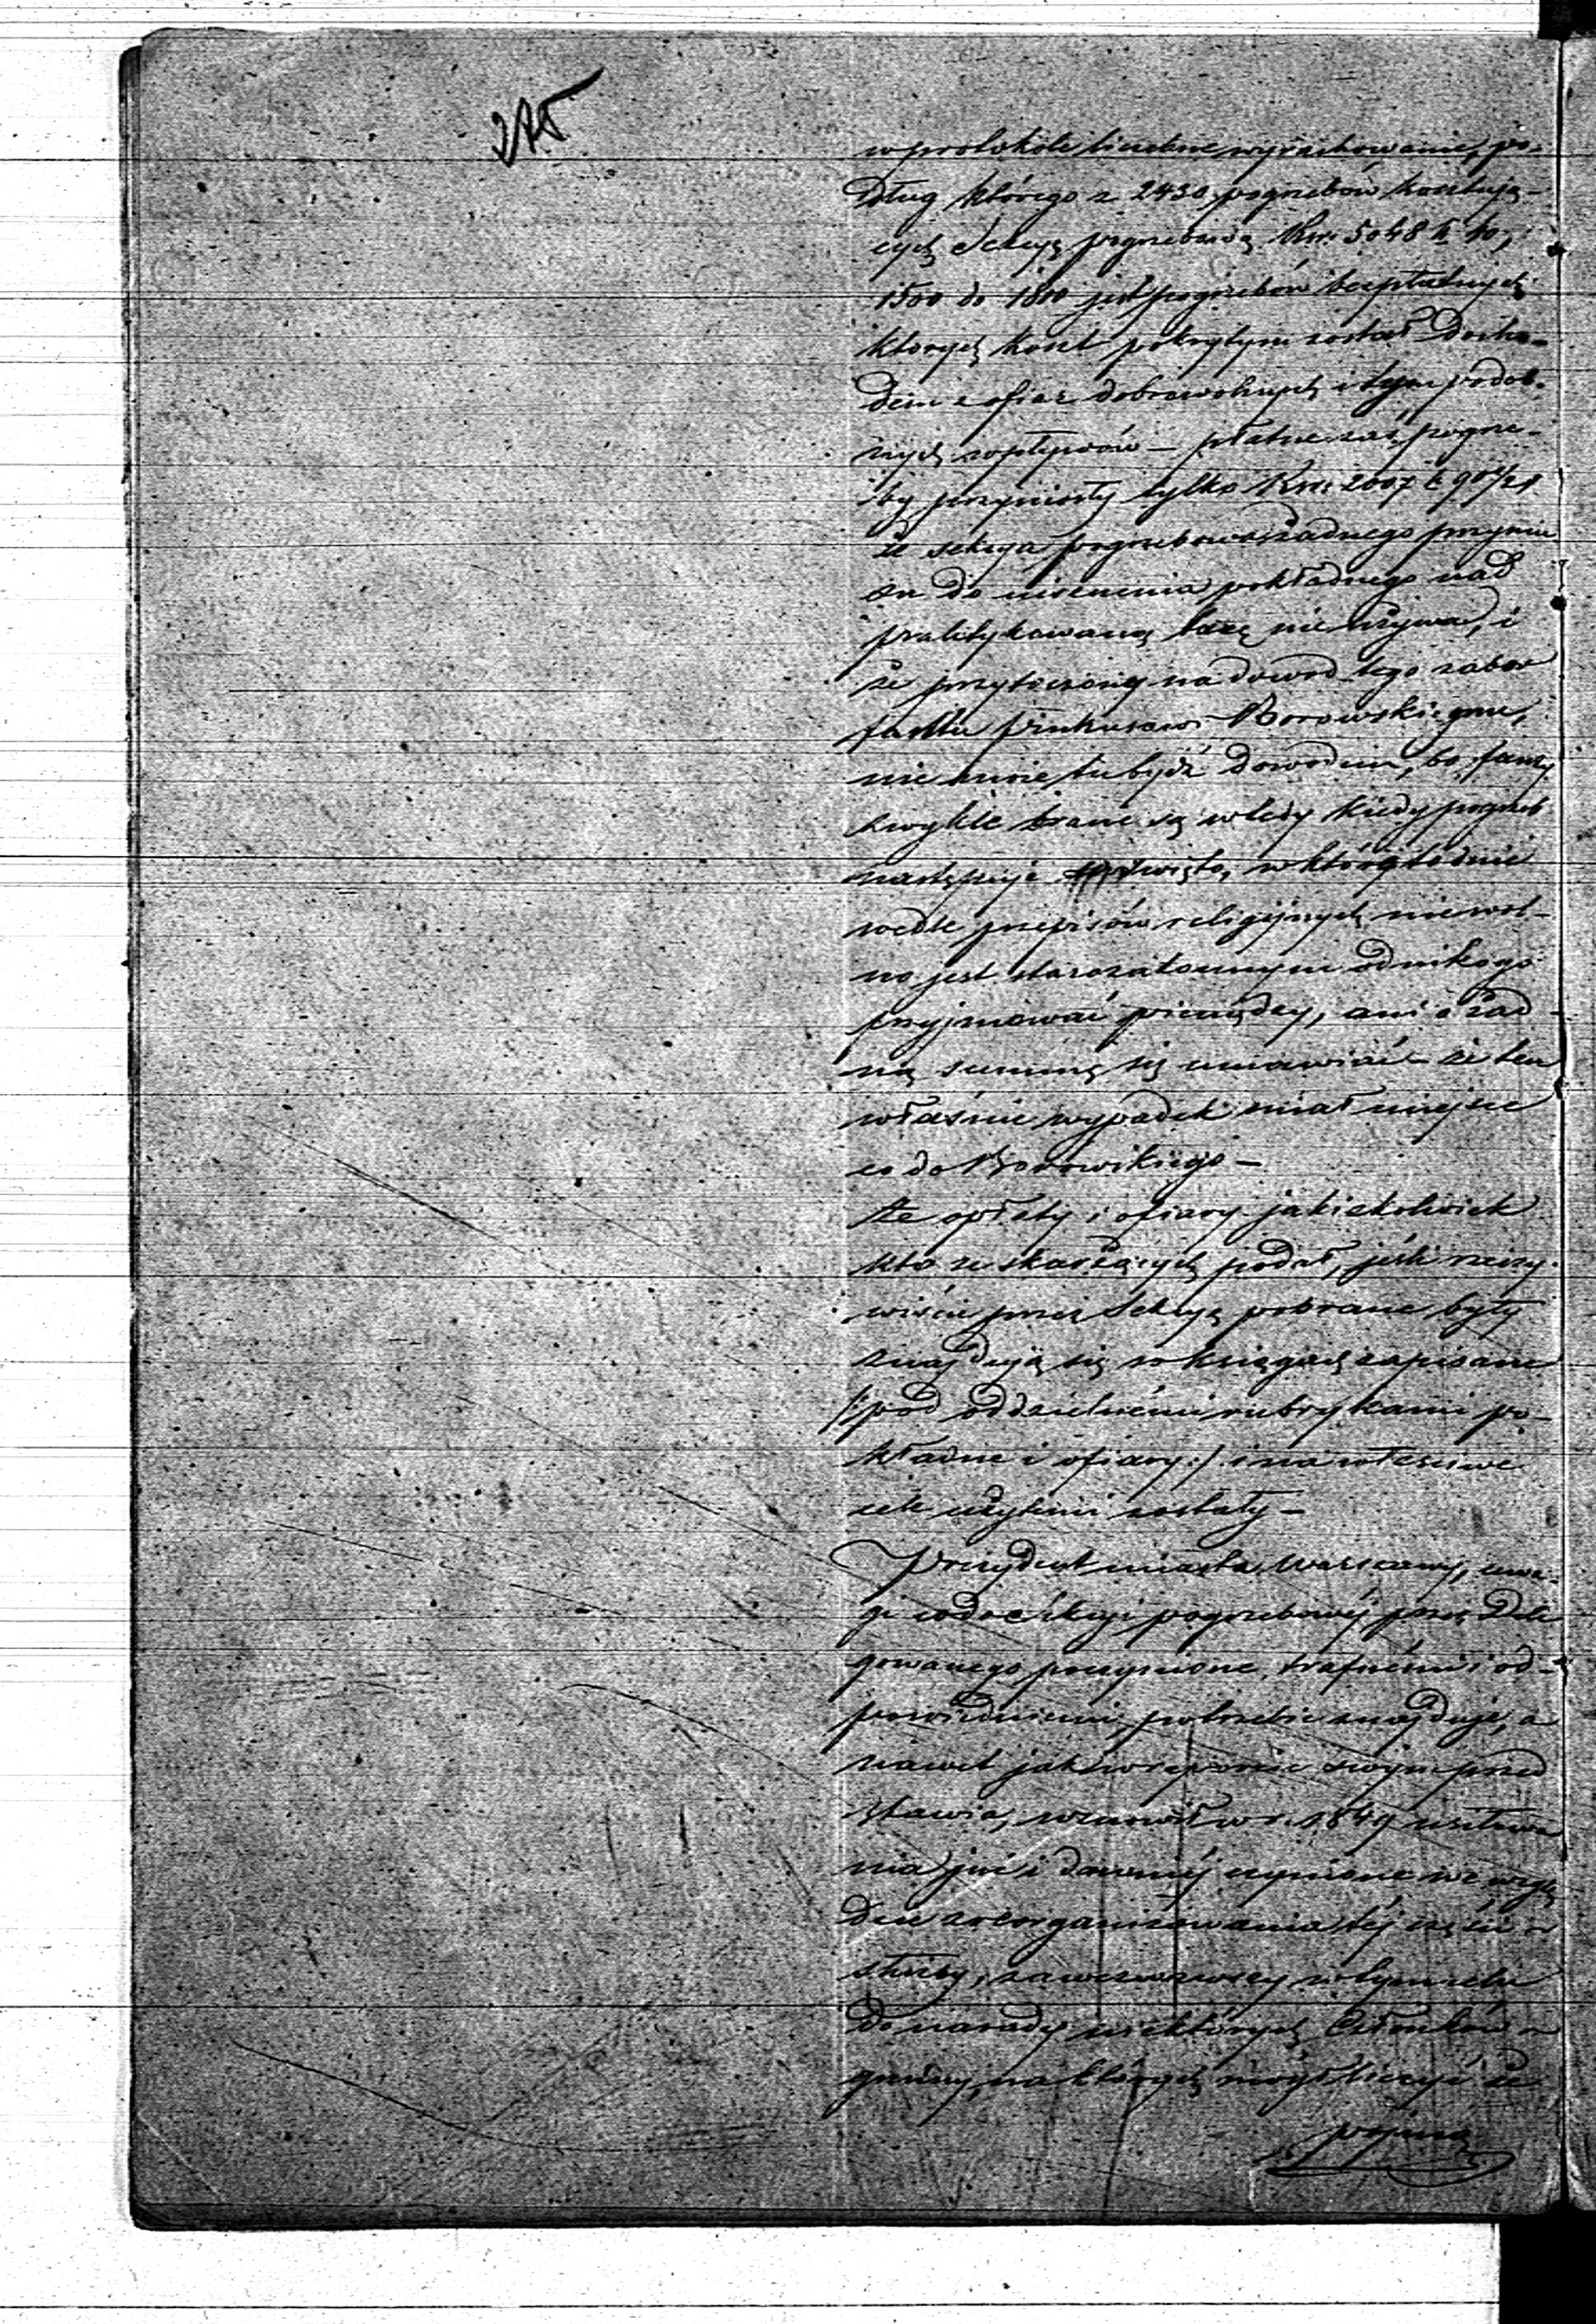 275
w protokóle liczebne wyrachowanie, po-
dług którego z 2430 pogrzebów kosztują-
cych Sekcyę pogrzebową Rsr. 5048 k. 40,
1500 do 1800 jest pogrzebów bezpłatnych
których koszt pokrytym został docho-
dem z ofiar dobrowolnych i tym podob-
nych wpływów — płatne zaś pogrze-
by przyniosły tylko Rsr. 2007 k. 90 1/2
że sekcya pogrzebowa żadnego przymu
su do uiszczenia pokładnego nad
praktykowaną taxę nie używa, i
że przytoczony na dowód tego zabór
fantu Pinkusowi Borowskiemu,
nie może tu bydź dowodem, bo fanty
zwykle brane są wtedy kiedy pogrzeb
następuje w święto, w które to dnie
wedle przepisów religijnych nie wol-
no jest starozakonnym od nikogo
przyjmować pieniędzy, ani o żad-
ną summę się umawiać — że ten
właśnie wypadek miał miejsce
co do Borowskiego —
że opłaty i ofiary jakiekolwiek
kto ze skarżących podał, jeśli rzeczy-
wiście przez Sekcyę pobrane były
znajdują się w księgach zapisane
/:pod oddzielnemi rubrykami po-
kładne i ofiary:/ i na właściwe
cele użytemi zostały —
Prezydent miasta Warszawy, uwa-
gi co do sekcyi pogrzebowéj przez Dele
gowanego poczynione, trafnemi i od-
powiedniemi potrzebie znajduje, a
nawet jak w raporcie swym przed
stawia, wznowił w r. 1849 usiłowa
nia już i dawniéj czynione we wzglę
dzie zreorganizowania téj części
służby, zawezwawszy w tym celu
do narady niektórych Członków
gminy, na których mógł liczyć że
pojmą